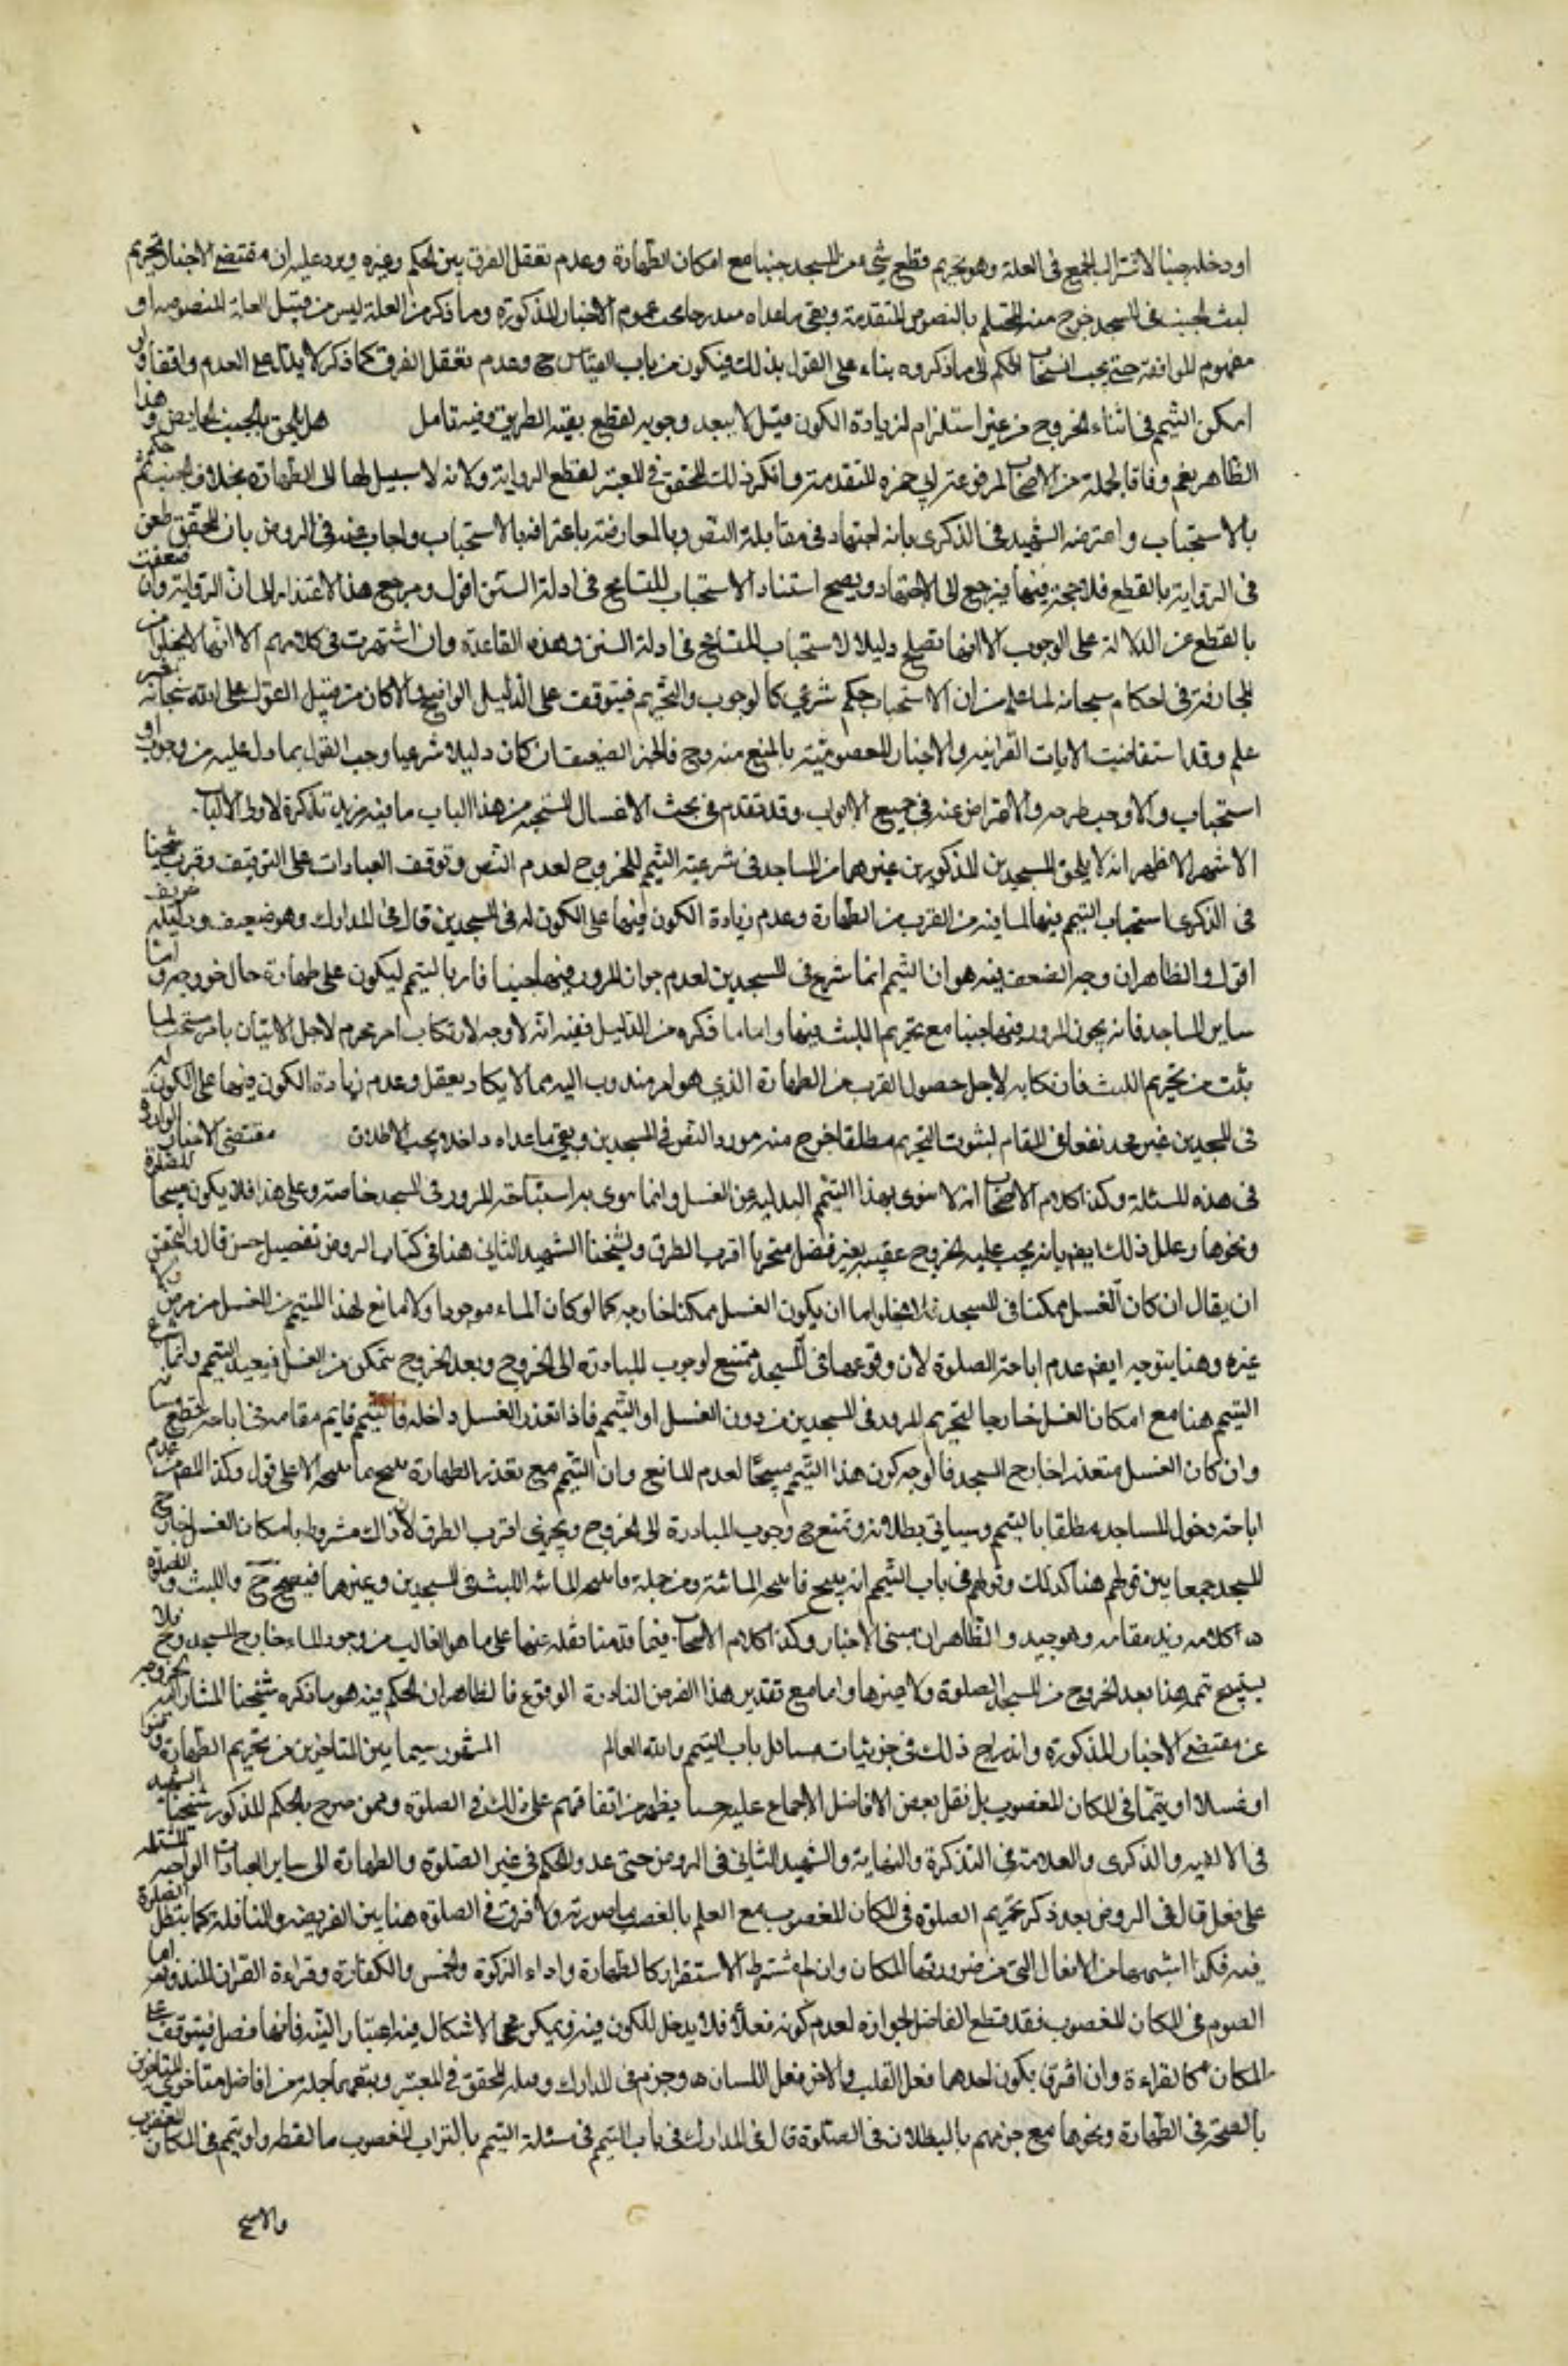 او دخله جنبا لاشتراك الجميع في العلة وهو تحريم قطع شيء من المسجد جنبا مع امكان الطهارة وعدم تعقل الفرق بين المحكم وغيره ويرد عليه ان مقتضى الاخبار تحريم
لبث الجنب في المسجد خرج منه المحتلم بالنصوص المتقدمة وبقي ما عداه مندرجا تحت عموم الاخبار المذكورة وما ذكر من العلة ليس من قبيل العلة المنصوصة او
مفهوم الموافقة حتى يجب انسحاب الحكم الى ما ذكروه بناء على القول بذلك فيكون من باب القياس ح وعدم تعقل الفرق كما ذكر لا يدل على العدم واقعا ولو
امكن التيمم في اثناء الخروج من غير استلزام لزيادة الكون قيل لا يبعد وجوبه لقطع بقية الطريق وفيه تامل هل يلحق بالجنب الحايض في هذا
الظاهر نعم وفاقا لجملة من الاصحاب لمرفوعة ابي حمزة المتقدمة وانكر ذلك المحقق في المعتبر لقطع الرواية ولانه لا سبيل لها الى الطهارة بخلاف الجنب ثم حكم
بالاستحباب واعترضه الشهيد في الذكرى بانه اجتهاد في مقابلة النص وبالمعارضة باعترافه بالاستحباب واجاب عنه في الروض بان المحقق طعن
في الرواية بالقطع فلا حجة فيها فيرجع الى الاجتهاد ويصح استناد الاستحباب للتسامح في ادلة السنن اقول ومرجع هذا الاعتذار الى ان الرواية وان ضعفت
بالقطع عن الدلالة على الوجوب الا انها تصلح دليلا لاستحباب للتسامح في ادلة السنن وهذه القاعدة وان اشتهرت في كلامهم الا انها لا تخلو من
المجازفة في احكامه سبحانه لما علم من ان الاستحباب حكم شرعي كالوجوب والتحريم فيتوقف على الدليل الواضح والا كان من قبيل القول على الله سبحانه بغير
علم وقد استفاضت الايات القرانية والاخبار المعصومية بالمنع منه وح فالخبر الضعيف ان كان دليلا شرعيا وجب القول بما دل عليه من وجوب او
استحباب والا وجب طرحه والاعراض عنه في جميع الابواب وقد تقدم في بحث الاغسال المستحبة من هذا الباب ما فيه مزيد تذكرة لاولي الالباب
الاشهر الاظهر انه لا يلحق بالمسجدين المذكورين غيرهما من المساجد في شرعية التيمم للخروج لعدم النص وتوقف العبادات على التوقيف وقرب شيخنا
في الذكرى استحباب التيمم فيها لما فيه من القرب من الطهارة وعدم زيادة الكون فيها على الكون له في المسجدين قال في المدارك وهو ضعيف ودليله ضعيف
اقول والظاهر ان وجه الضعف فيه هو ان التيمم انما شرع في المسجدين لعدم جواز المرور فيهما جنبا فامر بالتيمم ليكون على طهارة حال خروجه واما
ساير المساجد فانه يجوز المرور فيها جنبا مع تحريم اللبث فيها واما ما ذكره من الدليل ففيه انه لا وجه لارتكاب امر محرم لاجل الاتيان بامر مستحب لما
ثبت من تحريم اللبث فارتكابه لاجل حصول القرب من الطهارة الذي هو امر مندوب اليه مما لا يكاد يعقل وعدم زيادة الكون فيها على الكون له
في المسجدين غير مجد نفعا في المقام لثبوت التحريم مطلقا خرج منه مورد النص في المسجدين وبقي ما عداه داخلا تحت الاطلاق مقتضى الاخبار الواردة
في هذه المسئلة وكذا كلام الاصحاب انه لا ينوى بهذا التيمم البدلية عن الغسل وانما ينوى به استباحة المرور في المسجد خاصة وعلى هذا فلا يكون مبيحا للصلوة
ونحوها وعلل ذلك ايضا بانه يجب عليه الخروج عقيبه بغير فصل متحريا اقرب الطرق ولشيخنا الشهيد الثاني هنا في كتاب الروض تفصيل حسن قال والتحقيق
ان يقال ان كان الغسل ممكنا في المسجد فلا يخلو اما ان يكون الغسل ممكنا خارجه كما لو كان الماء موجودا ولا مانع لهذا المتيمم من الغسل من مرض او
غيره وهنا يتوجه ايضا عدم اباحة الصلوة لان وقوعها في المسجد ممتنع لوجوب المبادرة الى الخروج وبعد الخروج يتمكن من الغسل فيفسد التيمم وانما شرع
التيمم هنا مع امكان الغسل خارجا لتحريم المرور في المسجدين من دون الغسل او التيمم فاذا تعذر الغسل داخله فالتيمم قايم مقامه في اباحة قطع مسافته
وان كان الغسل متعذرا خارج المسجد فالوجه كون هذا التيمم مبيحا لعدم المانع وان التيمم مع تعذر الطهارة يبيح ما تبيحه الا على قول وكذا المص من عدم
اباحة دخول المساجد مطلقا بالتيمم وسياتي بطلانه وتمنع ح وجوب المبادرة الى الخروج وتحري اقرب الطرق لان ذاك مشروط بامكان الغسل خارج
المسجد جمعا بين قولهم هنا كذلك وقولهم في باب التيمم انه يبيح ما تبيحه المائية ومن جملة ما تبيحه المائية اللبث في المسجدين وغيرهما فيصح ح واللبث والصلوة
ه كلامه زيد مقامه وهو جيد والظاهر ان مبنى الاخبار وكذا كلام الاصحاب فيما قدمنا نقله عنهما على ما هو الغالب من وجود الماء خارج المسجد وح فلا
يستبيح بتيممه هذا بعد الخروج من المسجد الصلوة ولا غيرها واما مع تقدير هذا الفرض النادرة الوقوع فالظاهر ان الحكم فيه هو ما ذكره شيخنا المشار اليه لخروجه
عن مقتضى الاخبار المذكورة واندراج ذلك في جزئيات مسائل باب التيمم والله العالم المشهور سيما بين المتاخرين من تحريم الطهارة وضوءا
او غسلا او تيمما في المكان المغصوب بل نقل بعض الافاضل الاجماع عليه حسبما يظهر من اتفاقهم على ذلك في الصلوة وممن صرح بالحكم المذكور شيخنا الشهيد
في الالفية والذكرى والعلامة في التذكرة والنهاية والشهيد الثاني في الروض حتى عدوا الحكم في غير الصلوة والطهارة الى ساير العبادات الواجبة المشتملة
على فعل قال في الروض بعد ذكر تحريم الصلوة في المكان المغصوب مع العلم بالغصب ما صورته ولا فرق في الصلوة هنا بين الفريضة والنافلة وكما تبطل الصلوة
فيه فكذا ما اشبهها من الافعال التي من ضرورتها المكان وان لم يشترط الاستقرار كالطهارة واداء الزكوة والخمس والكفارة وقراءة القران المنذورة اما
الصوم في المكان المغصوب فقد قطع الفاضل بجوازه لعدم كونه فعلا فلا مدخل للكون فيه ويمكن مجيء الاشكال فيه باعتبار النية فانها فعل فيتوقف على
المكان كالقراءة وان افترق بكون احدهما فعل القلب والاخر فعل اللسان ه وجزم في المدارك وقبله المحقق في المعتبر وتبعهما جملة من افاضل متاخري المتاخرين
بالصحة في الطهارة ونحوها مع جزمهم بالبطلان في الصلوة قال في المدارك في باب التيمم في مسئلة التيمم بالتراب المغصوب ما لفظه ولو تيمم في المكان المغصوب
والاصح